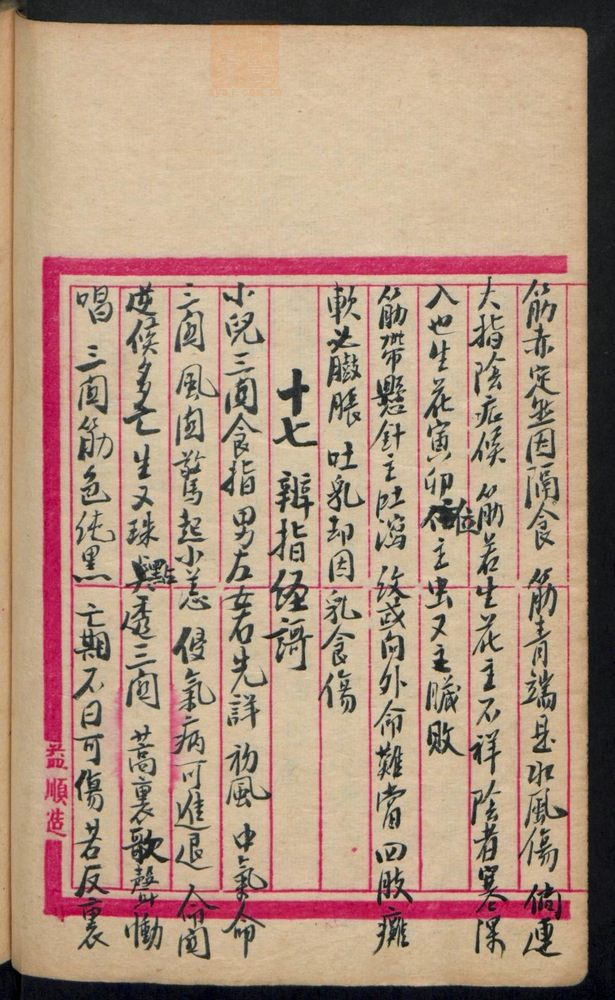 筋赤定然因隔食 筋青端是水風傷 倘連
大指陰症候 筋若生花主不祥 陰者寒深
入也生花寅卯位主虫又主臟敗
筋帶懸針主吐瀉 紋或向外命難當 四肢癱
軟必臌脹 吐乳却因乳食傷
十七 辨指經訶
小児三関食指 男左女右先詳 初風中氣命
三関 風関驚起小恙 侵氣病可進退 命関
逆候多亡 生叉珠黑透三関 蒿裏歌聲慟
唱 三関筋色純黑 亡期不日可傷 若反裏
益順造